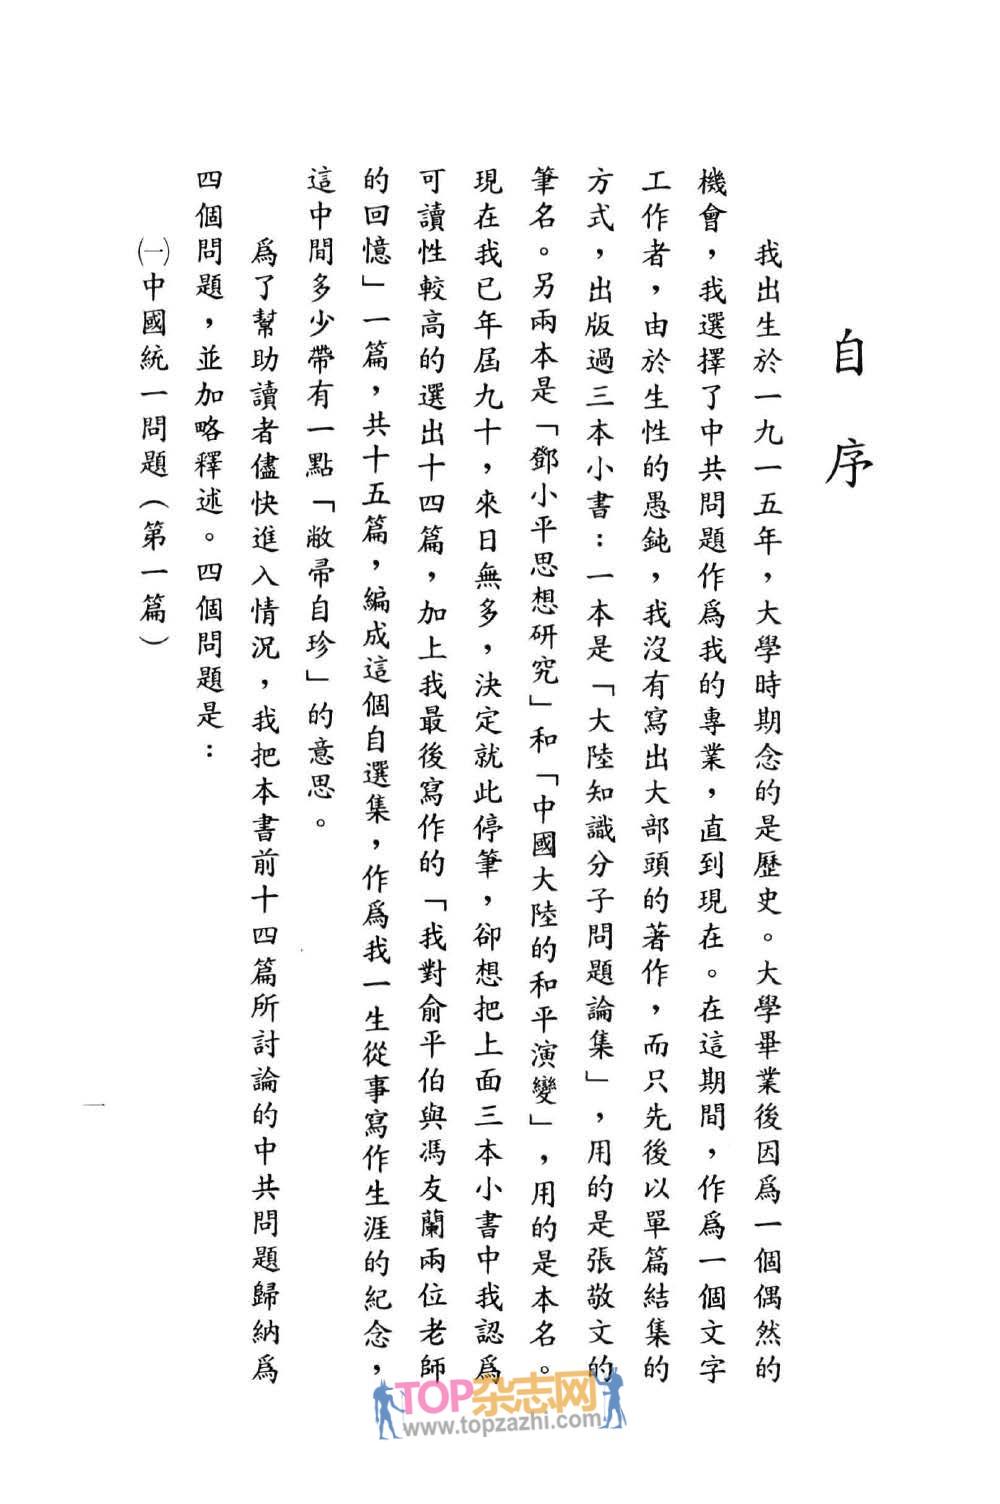 自序
我出生於一九一五年，大學時期念的是歷史。大學畢業後因爲一個偶然的
機會，我選擇了中共問題作爲我的專業，直到現在。在這期間，作爲一個文字
工作者，由於生性的愚鈍，我沒有寫出大部頭的著作，而只先後以單篇結集的
方式，出版過三本小書：一本是「大陸知識分子問題論集」，用的是張敬文的
筆名。另兩本是「鄧小平思想研究」和「中國大陸的和平演變」，用的是本名。
現在我已年屆九十，來日無多，決定就此停筆，卻想把上面三本小書中我認爲
可讀性較高的選出十四篇，加上我最後寫作的「我對俞平伯與馮友蘭兩位老師
的回憶」一篇，共十五篇，編成這個自選集，作爲我一生從事寫作生涯的紀念，
這中間多少帶有一點「敝帚自珍」的意思。
爲了幫助讀者儘快進入情況，我把本書前十四篇所討論的中共問題歸納爲
四個問題，並加略釋述。四個問題是：
㈠中國統一問題（第一篇）
一
TOP杂志网
www.topzazhi.com